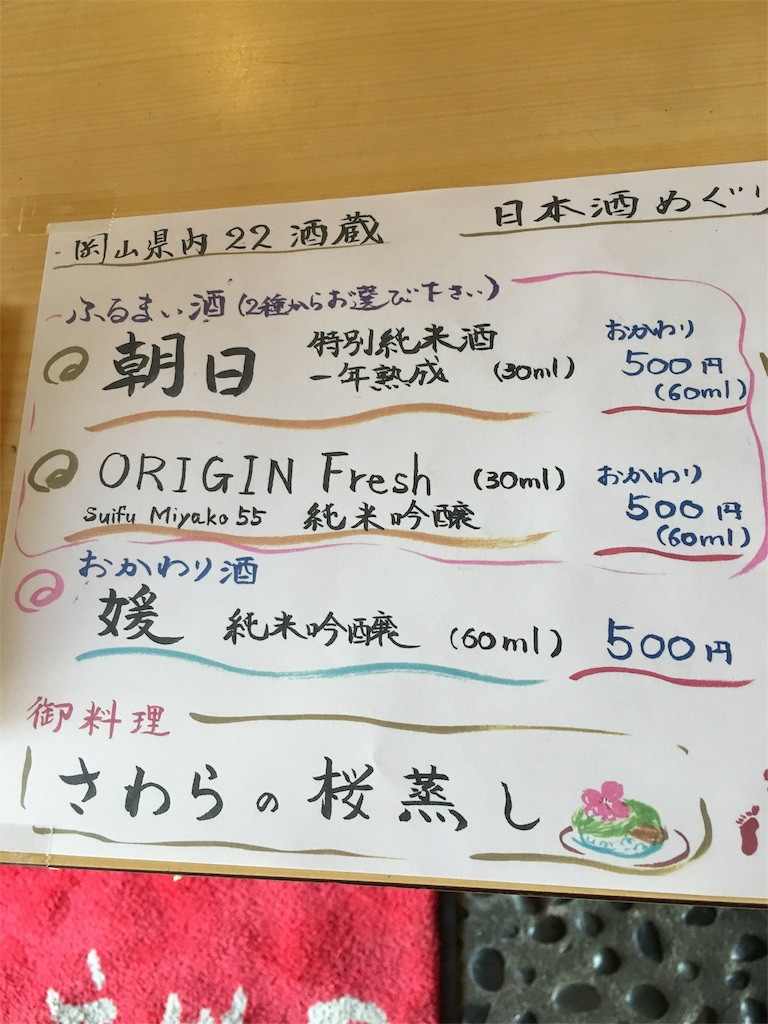 岡山県内22酒蔵 日本酒めぐり
ふるまい酒(2種からお選び下さい)
朝日 特別純米酒 おかわり
一年熟成 (30ml) 500円
(60ml)
ORIGIN Fresh (30ml) おかわり
Suifu Miyako 55 純米吟醸 500円
(60ml)
おかわり酒
媛 純米吟醸 (60ml) 500円
御料理
さわらの桜蒸し